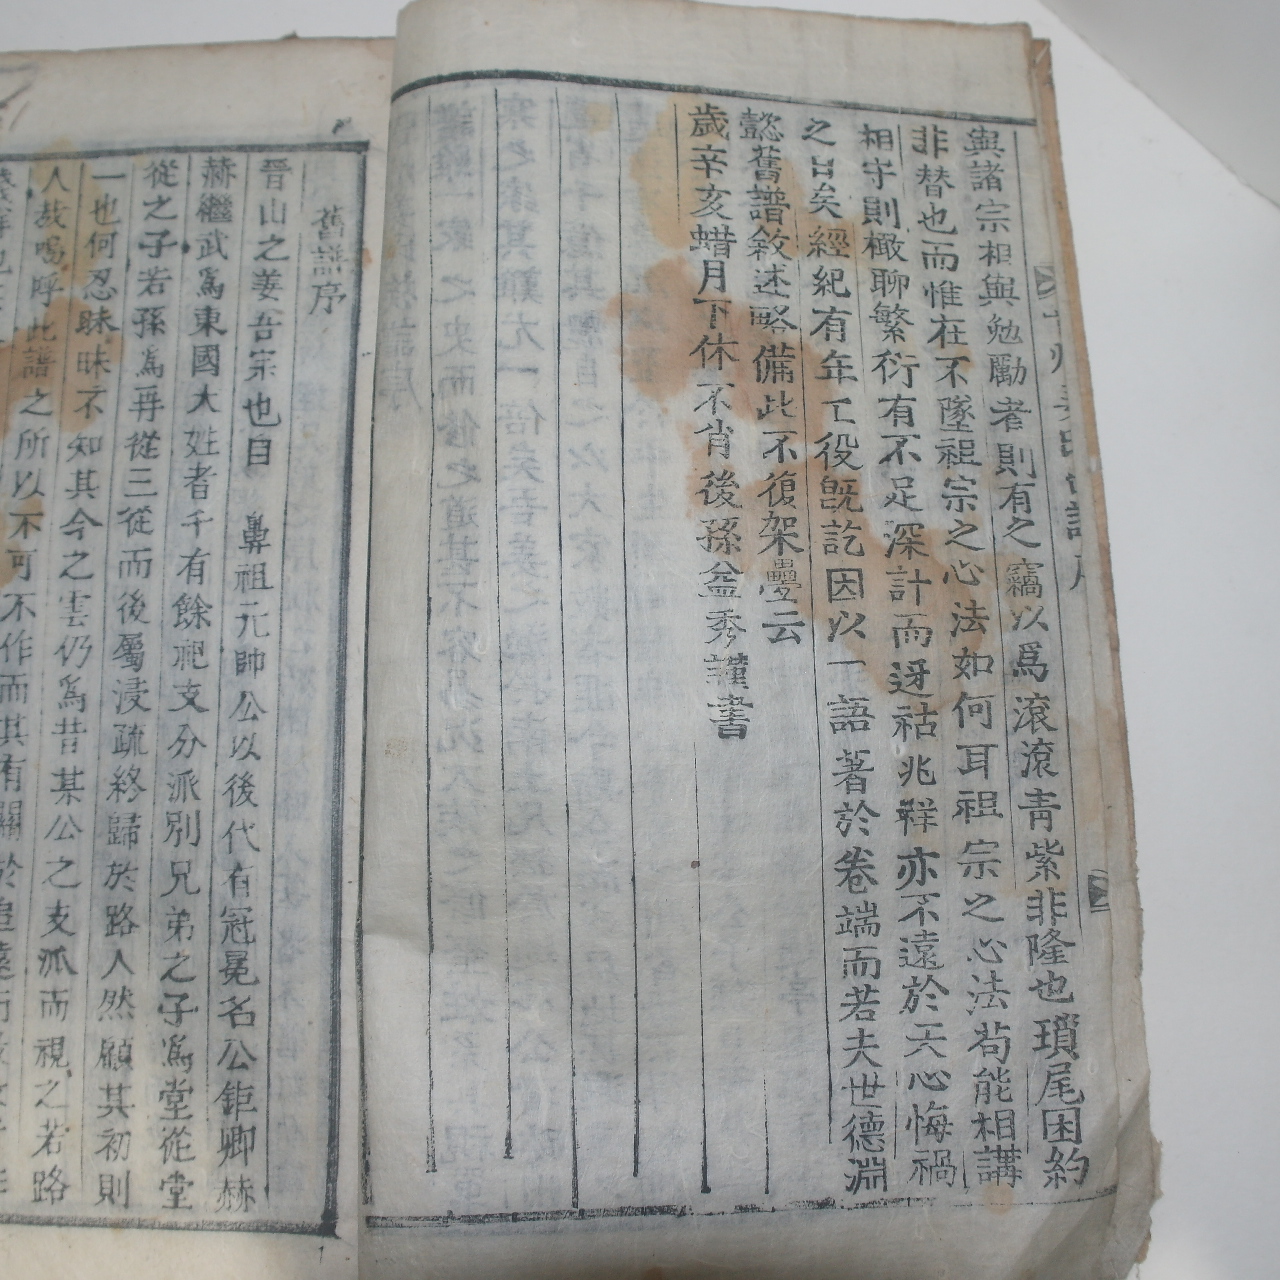 與諸宗相與勉勵者則有之竊以爲滾滾靑紫非隆也瑣尾困約
非替也而惟在不墜祖宗之心法如何耳祖宗之心法苟能相講
相守則椒聊繁衍有不足深計而迓祜兆祥亦不遠於天心悔禍
之日矣經紀有年工役旣訖因以一語著於卷端而若夫世德淵
懿舊譜敘述略備此不復架疊云
歲辛亥蜡月下休不肖後孫益秀謹書
舊譜序
晉山之姜吾宗也自 鼻祖元帥公以後代有冠冕名公鉅卿赫
赫繼武爲東國大姓者千有餘祀支分派別兄弟之子爲堂從堂
從之子若孫爲再從三從而後屬浸疏終歸於路人然顧其初則
一也何忍昧昧不知其今之雲仍爲昔某公之支派而視之若路
人哉嗚呼此譜之所以不可不作而其有關於追遠